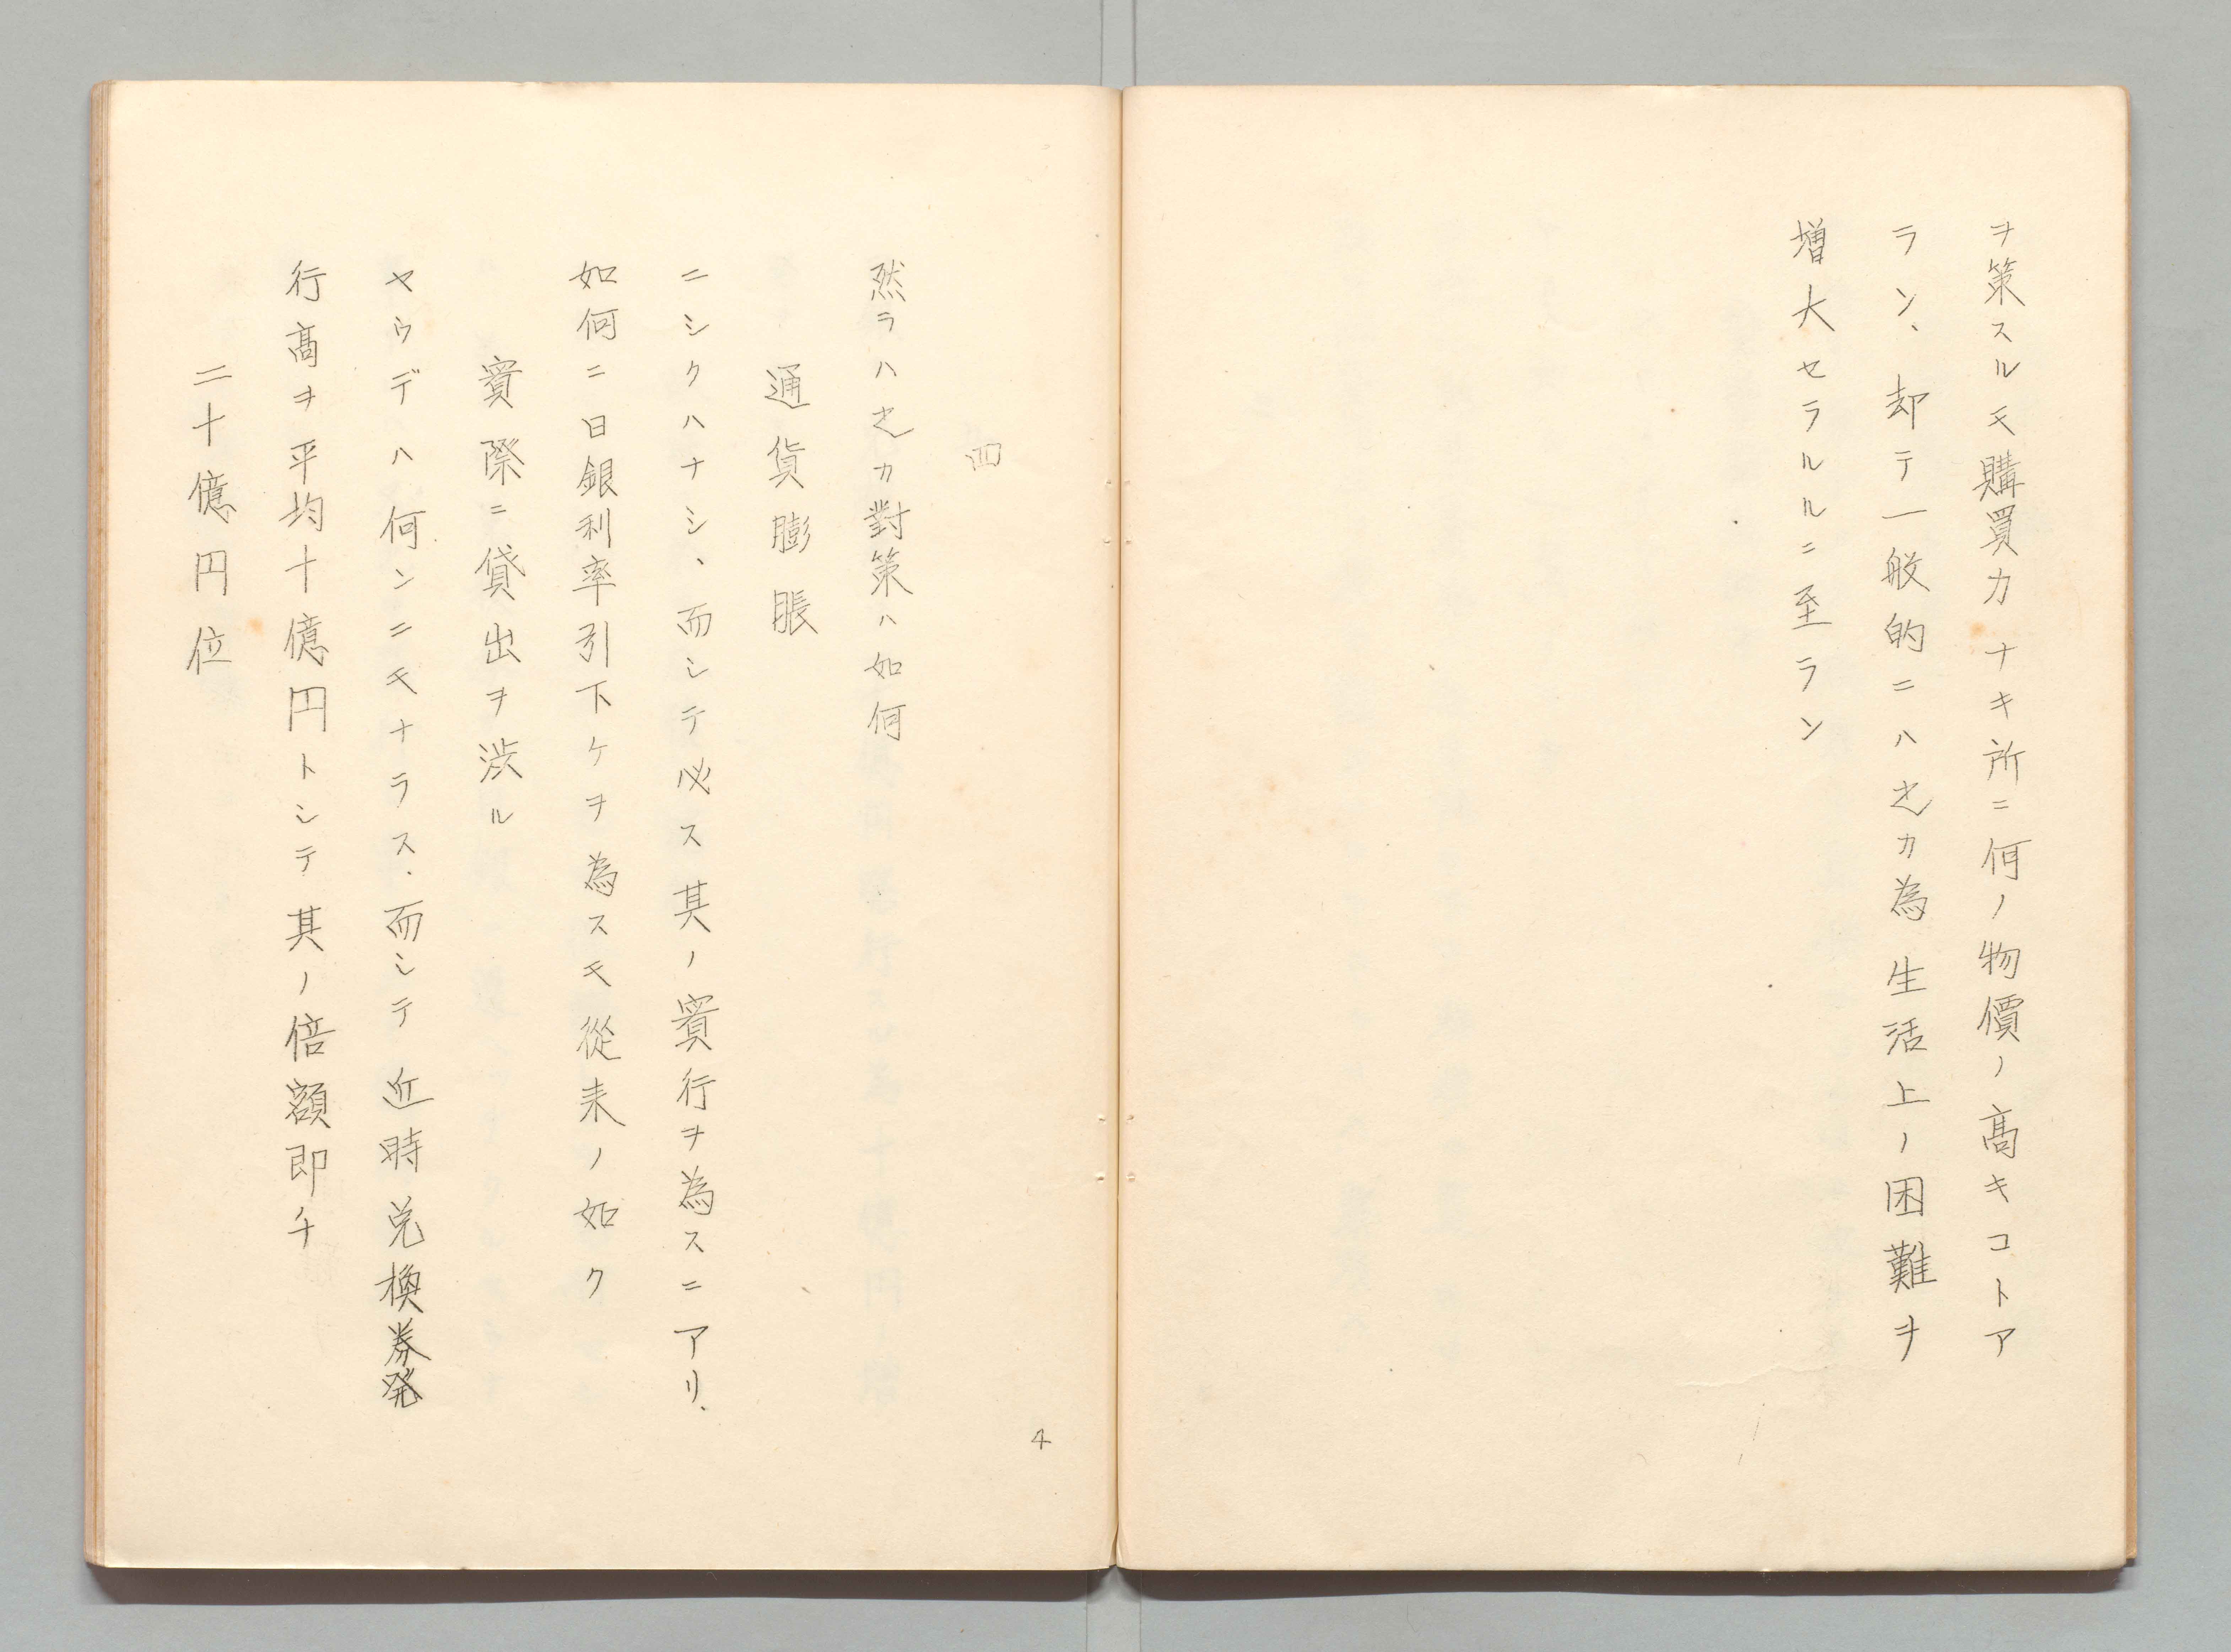 ヲ策スルモ購買力ナキ所ニ何ノ物價ノ高キコトア
ラン、却テ一般的ニハ之カ為生活上ノ困難ヲ
増大セラルルニ至ラン
四
然ラハ之カ對策ハ如何
通貨膨脹
ニシクハナシ、而シテ必ス其ノ實行ヲ為スニアリ.
如何ニ日銀利率引下ケヲ為スモ從来ノ如ク
實際ニ貸出ヲ渋ル
ヤウデハ何ンニモナラス.而シテ近時兌換券発
行高ヲ平均十億円トシテ其ノ倍額即チ
二十億円位
4